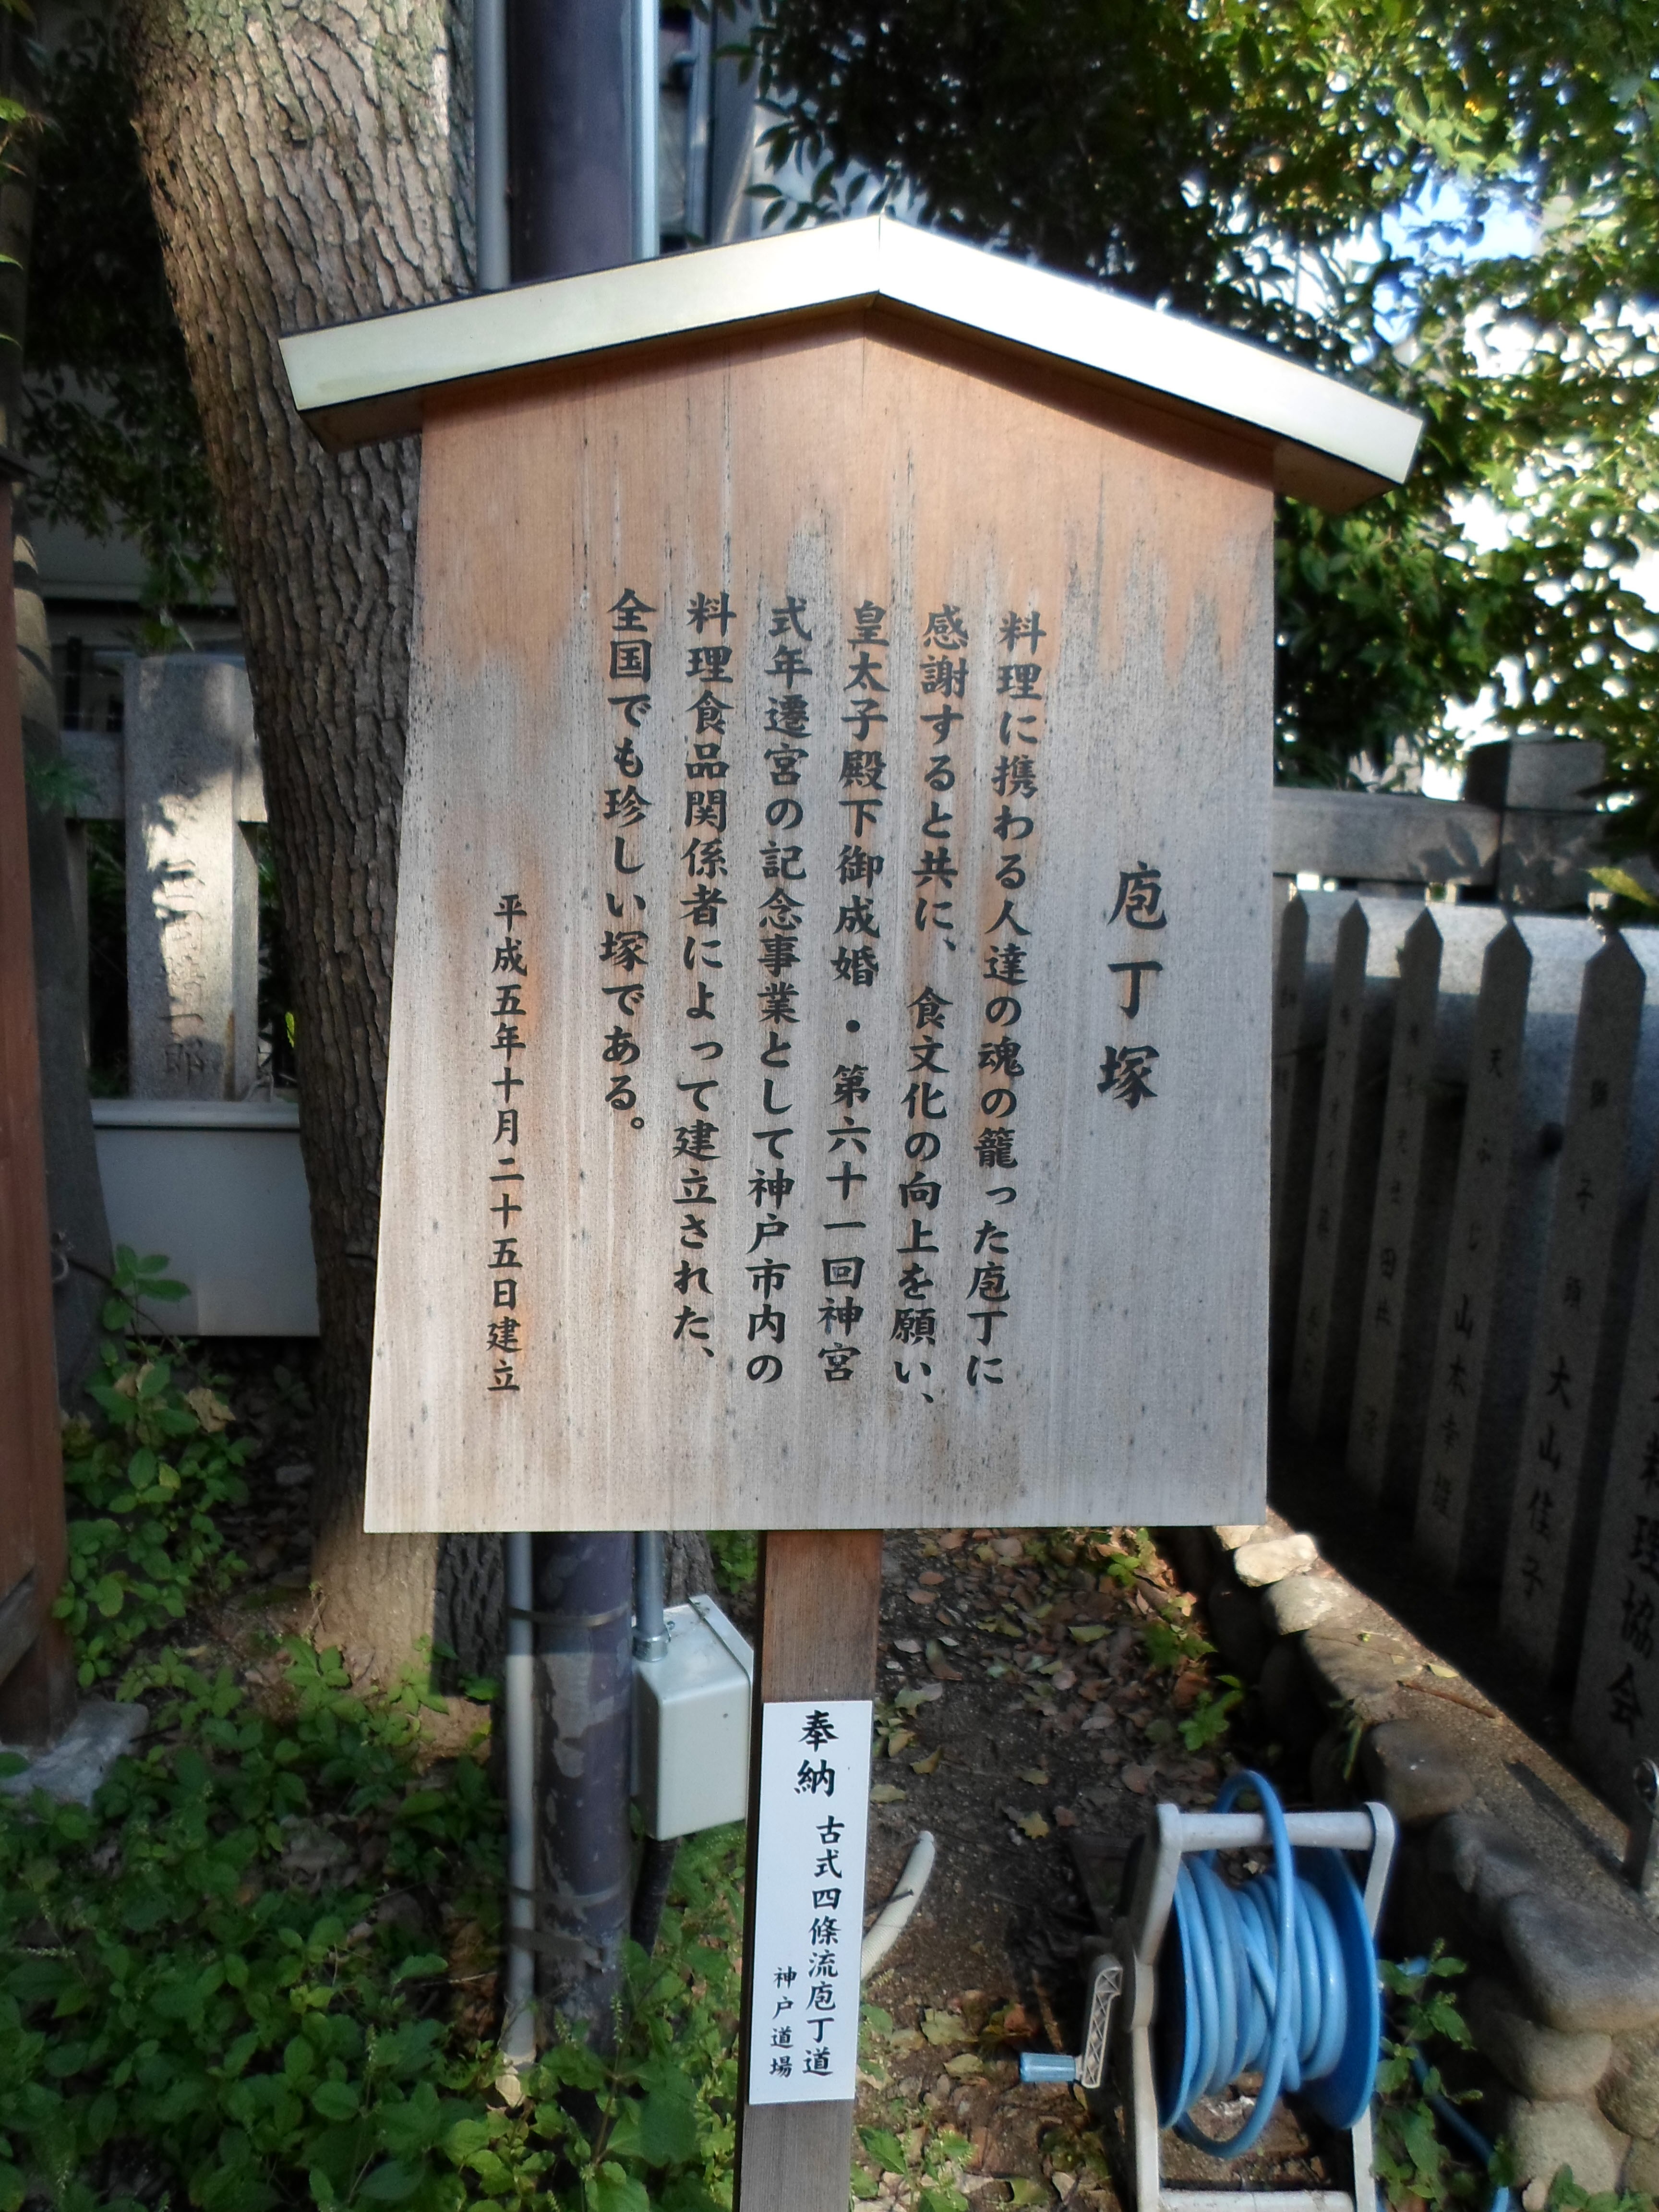 庖丁塚
料理に携わる人達の魂の籠った庖丁に
感謝すると共に、食文化の向上を願い、
皇太子殿下御成婚・第六十一回神宮
式年遷宮の記念事業として神戸市内の
料理食品関係者によって建立された、
全国でも珍しい塚である。
平成五年十月二十五日建立
奉納
古式四條流庖丁道
神戸道場
大山佳子
山本幸雄
料理協会